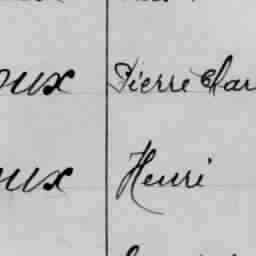 oux Pierre Clar
oux Henri